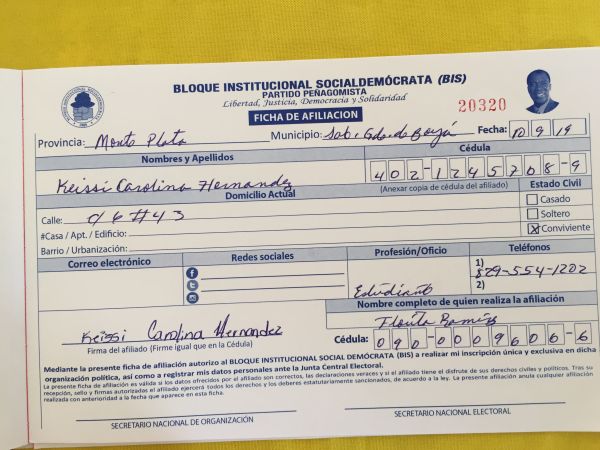 BLOQUE INSTITUCIONAL SOCIALDEMÓCRATA (BIS)
PARTIDO PEÑAGOMISTA
Libertad, Justicia, Democracia y Solidaridad
20320
FICHA DE AFILIACION
Provincia: Monte Plata Municipio: Sab. Gde. de Boyá Fecha: 10 9 19
Nombres y Apellidos Cédula
Keissi Carolina Hernandez 402-1245708-9
(Anexar copia de cédula del afiliado)
Domicilio Actual Estado Civil
Calle: c/ 6 #43 Casado
#Casa / Apt. / Edificio: Soltero
Barrio / Urbanización: X Conviviente
Correo electrónico Redes sociales Profesión/Oficio Teléfonos
1) 829-554-1202
2)
Estudiante
Nombre completo de quien realiza la afiliación
Keissi Carolina Hernandez Ramírez
Firma del afiliado (Firme igual que en la Cédula) Cédula: 090-0009606-6
Mediante la presente ficha de afiliación autorizo al BLOQUE INSTITUCIONAL SOCIAL DEMÓCRATA (BIS) a realizar mi inscripción única y exclusiva en dicha
organización política, así como a registrar mis datos personales ante la Junta Central Electoral.
La presente ficha de afiliación es válida si los datos ofrecidos por el afiliado son correctos, las declaraciones veraces y si el titular tiene el disfrute de sus derechos civiles y políticos. Tras su
recepción, sello y firmas autorizados el afiliado ejercerá todos los derechos y los deberes estatutariamente sancionados, de acuerdo a la ley. La presente afiliación anula cualquier afiliación
realizada con anterioridad a la fecha que aparece en esta ficha.
SECRETARIO NACIONAL DE ORGANIZACIÓN SECRETARIO NACIONAL ELECTORAL